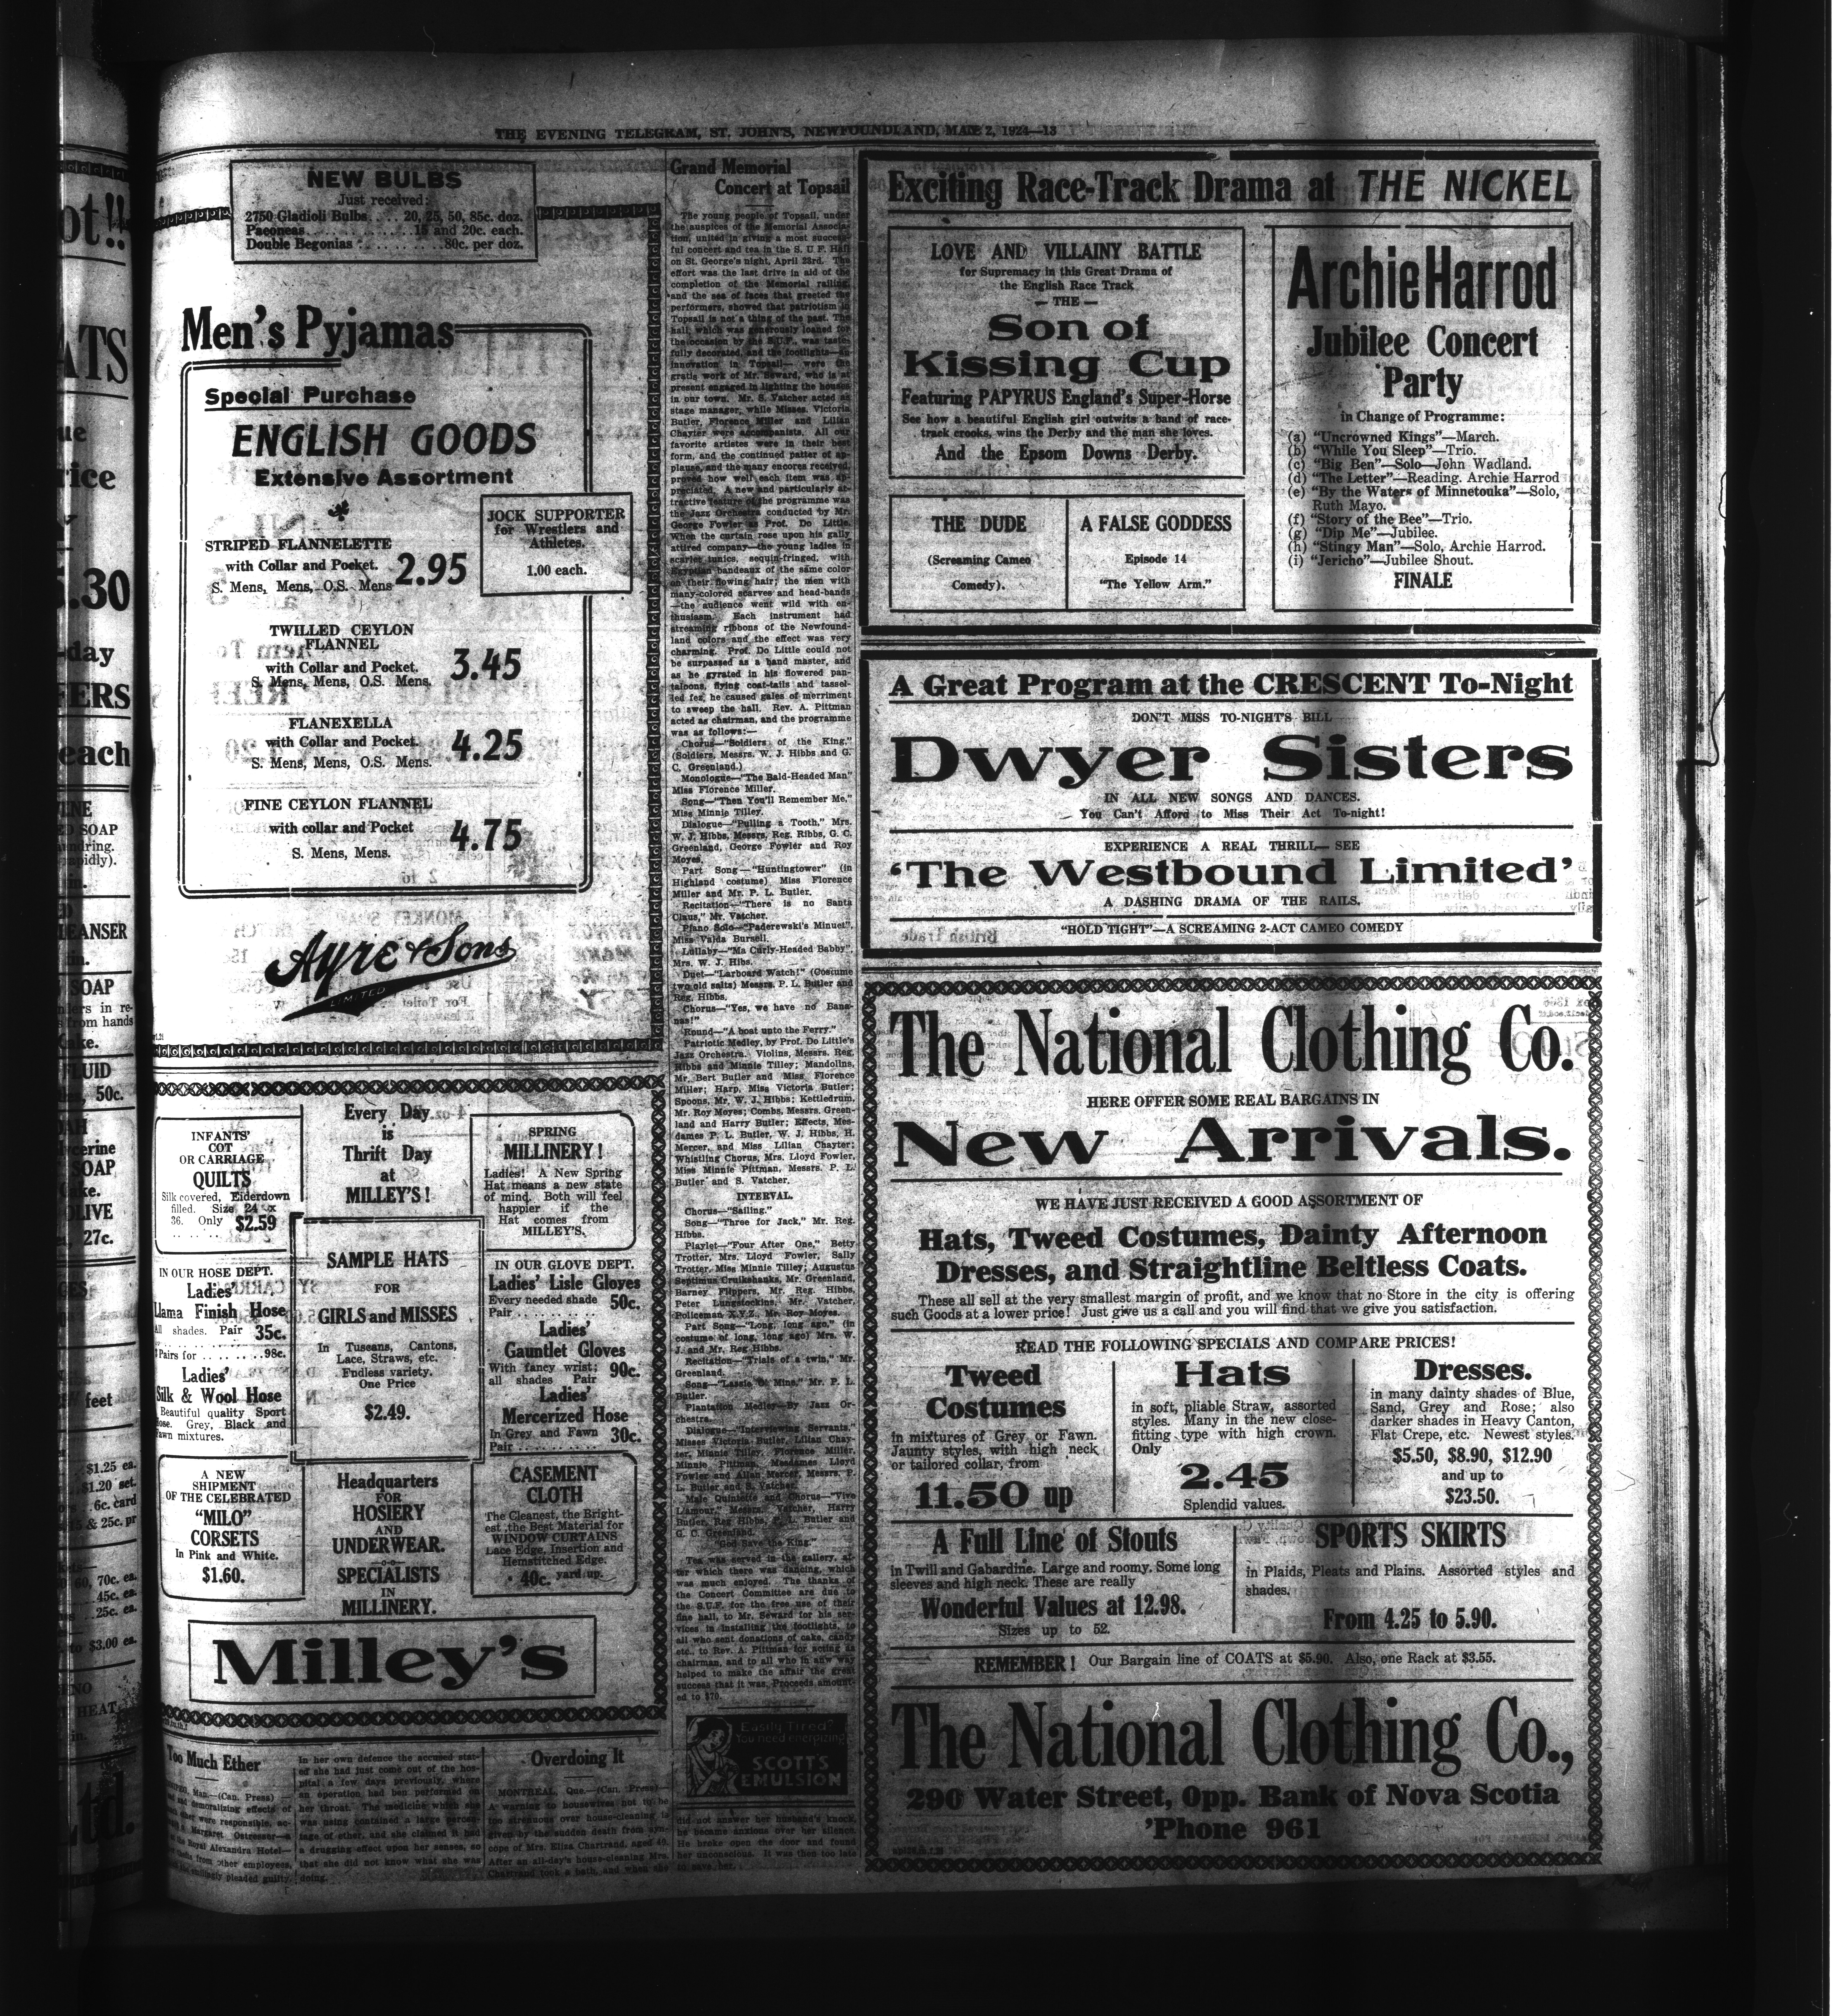 THE EVENING TELEGRAM, ST. JOHN'S, NEWFOUNDLAND, MAY 2, 1924—13
NEW BULBS
Just received:
2750 Gladioli Bulbs.... 20, 25, 50, 85c. doz.
Paeoneas............15 and 20c. each.
Double Begonias........80c. per doz.
Men's Pyjamas
Special Purchase
ENGLISH GOODS
Extensive Assortment
JOCK SUPPORTER
for Wrestlers and
Athletes.
1.00 each.
STRIPED FLANNELETTE
with Collar and Pocket.
S. Mens, Mens, O.S. Mens
2.95
TWILLED CEYLON
FLANNEL
with Collar and Pocket.
S. Mens, Mens, O.S. Mens.
3.45
FLANEXELLA
with Collar and Pocket.
S. Mens, Mens, O.S. Mens.
4.25
FINE CEYLON FLANNEL
with collar and Pocket
S. Mens, Mens.
4.75
Ayre & Sons
LIMITED
INFANTS'
COT
OR CARRIAGE
QUILTS
Silk covered, Eiderdown
filled. Size 24 x
36. Only $2.59
Every Day
is
Thrift Day
at
MILLEY'S!
SPRING
MILLINERY!
Ladies! A New Spring
Hat means a new state
of mind. Both will feel
happier if the
Hat comes from
MILLEY'S.
IN OUR HOSE DEPT.
Ladies'
Llama Finish Hose
All shades. Pair 35c.
Pairs for ........98c.
Ladies'
Silk & Wool Hose
Beautiful quality Sport
Hose. Grey, Black and
Fawn mixtures.
SAMPLE HATS
FOR
GIRLS and MISSES
In Tuscans, Cantons,
Lace, Straws, etc.
Endless variety.
One Price
$2.49.
IN OUR GLOVE DEPT.
Ladies' Lisle Gloves
Every needed shade
Pair .. 50c.
Ladies'
Gauntlet Gloves
With fancy wrist;
all shades Pair 90c.
Ladies'
Mercerized Hose
In Grey and Fawn
Pair .......... 30c.
A NEW
SHIPMENT
OF THE CELEBRATED
"MILO"
CORSETS
In Pink and White.
$1.60.
Headquarters
FOR
HOSIERY
AND
UNDERWEAR.
-o-o-
SPECIALISTS
IN
MILLINERY.
CASEMENT
CLOTH
The Cleanest, the Bright-
est, the Best Material for
WINDOW CURTAINS
Lace Edge, Insertion and
Hemstitched Edge.
40c. yard up.
Milley's
Too Much Ether
In her own defence the accused stat-
ed she had just come out of the hos-
pital a few days previously, where
an operation had ben performed on
her throat. The medicine which she
was using contained a large percen-
tage of ether, and she claimed it had
a drugging effect upon her senses, so
that she did not know what she was
doing.
Overdoing It
MONTREAL, Que.—(Can. Press)—
A warning to housewives not to be
too strenuous over house-cleaning is
given by the sudden death from syn-
cope of Mrs. Eliza Chartrand, aged 40.
After an all-day's house-cleaning Mrs.
Chartrand took a bath, and when she
did not answer her husband's knock,
he became anxious over her silence.
He broke open the door and found
her unconscious. It was then too late
to save her.
Grand Memorial
Concert at Topsail
The young people of Topsail, under
the auspices of the Memorial Associa-
tion, united in giving a most success-
ful concert and tea in the S. U. F. Hall
on St. George's night, April 23rd. The
effort was the last drive in aid of the
completion of the Memorial railing,
and the sea of faces that greeted the
performers, showed that patriotism in
Topsail is not a thing of the past. The
hall, which was generously loaned for
the occasion by the S.U.F., was taste-
fully decorated, and the footlights—an
innovation in Topsail—were the
gratis work of Mr. Seward, who is at
present engaged in lighting the houses
in our town. Mr. S. Vatcher acted as
stage manager, while Misses. Victoria
Butler, Florence Miller and Lilian
Chayter were accompanists. All our
favorite artistes were in their best
form, and the continued patter of ap-
plause, and the many encores received,
proved how well each item was ap-
preciated. A new and particularly at-
tractive feature of the programme was
the Jazz Orchestra conducted by Mr.
George Fowler as Prof. Do Little.
When the curtain rose upon his gally
attired company—the young ladies in
scarlet tunics, sequin-fringed, with
Egyptian bandeaux of the same color
on their flowing hair; the men with
many-colored scarves and head-bands
—the audience went wild with en-
thusiasm. Each instrument had
streaming ribbons of the Newfound-
land colors and the effect was very
charming. Prof. Do Little could not
be surpassed as a band master, and
as he gyrated in his flowered pan-
taloons, flying coat-tails and tassel-
led fez, he caused gales of merriment
to sweep the hall. Rev. A. Pittman
acted as chairman, and the programme
was as follows:—
Chorus—"Soldiers of the King."
(Soldiers, Messrs. W. J. Hibbs and G.
C. Greenland.)
Monologue—"The Bald-Headed Man"
Miss Florence Miller.
Song—"Then You'll Remember Me,"
Miss Minnie Tilley.
Dialogue—"Pulling a Tooth," Mrs.
W. J. Hibbs, Messrs. Reg. Ribbs, G. C.
Greenland, George Fowler and Roy
Moyes.
Part Song—"Huntingtower" (in
Highland costume) Miss Florence
Miller and Mr. P. L. Butler.
Recitation—"There is no Santa
Claus," Mr. Vatcher.
Piano Solo—"Paderewski's Minuet",
Miss Valda Bursell.
Lullaby—"Ma Curly-Headed Babby",
Mrs. W. J. Hibs.
Duet—"Larboard Watch!" (Costume
two old salts) Messrs. P. L. Butler and
Reg. Hibbs.
Chorus—"Yes, we have no Bana-
nas!"
Round—"A boat unto the Ferry."
Patriotic Medley, by Prof. Do Little's
Jazz Orchestra. Violins, Messrs. Reg.
Hibbs and Minnie Tilley; Mandolins,
Mr. Bert Butler and Miss Florence
Miller; Harp, Miss Victoria Butler;
Spoons, Mr. W. J. Hibbs; Kettledrum,
Mr. Roy Moyes; Combs, Messrs. Green-
land and Harry Butler; Effects, Mes-
dames P. L. Butler, W. J. Hibbs, H.
Mercer, and Miss Lilian Chayter;
Whistling Chorus, Mrs. Lloyd Fowler,
Miss Minnie Pittman, Messrs. P. L.
Butler and S. Vatcher.
INTERVAL.
Chorus—"Sailing."
Song—"Three for Jack," Mr. Reg.
Hibbs.
Playlet—"Four After One," Betty
Trotter, Mrs. Lloyd Fowler, Sally
Trotter, Miss Minnie Tilley; Augustus
Septimus Cruikshanks, Mr. Greenland,
Barney Flippers, Mr. Reg. Hibbs,
Peter Lungstockins, Mr. Vatcher,
Policeman X.Y.Z., Mr. Roy Moyes.
Part Song—"Long, long ago," (in
costume of long, long ago) Mrs. W.
J. and Mr. Reg Hibbs.
Recitation—"Trials of a twin," Mr.
Greenland.
Song—"Lassie O' Mine," Mr. P. L.
Butler.
Plantation Medley—By Jazz Or-
chestra.
Dialogue—"Interviewing Servants,"
Misses Victoria Butler, Lilian Chay-
ter, Minnie Tilley, Florence Miller,
Minnie Pittman, Mesdames Lloyd
Fowler and Allan Mercer, Messrs. P.
L. Butler and S. Vatcher.
Male Quintette and Chorus—"Vive
L'amour," Messrs. Vatcher, Harry
Butler, Reg Hibbs, P. L. Butler and
G. C. Greenland.
"God Save the King."
Tea was served in the gallery, af-
ter which there was dancing, which
was much enjoyed. The thanks of
the Concert Committee are due to
the S.U.F. for the free use of their
fine hall, to Mr. Seward for his ser-
vices in installing the footlights, to
all who sent donations of cake, candy
etc., to Rev. A. Pittman for acting as
chairman, and to all who in any way
helped to make the affair the great
success that it was. Proceeds amount-
ed to $70.
Easily Tired?
You need energizing
SCOTT'S
EMULSION
Exciting Race-Track Drama at THE NICKEL
LOVE AND VILLAINY BATTLE
for Supremacy in this Great Drama of
the English Race Track
— THE —
Son of
Kissing Cup
Featuring PAPYRUS England's Super-Horse
See how a beautiful English girl outwits a band of race-
track crooks, wins the Derby and the man she loves.
And the Epsom Downs Derby.
THE DUDE
(Screaming Cameo
Comedy).
A FALSE GODDESS
Episode 14
"The Yellow Arm."
Archie Harrod
Jubilee Concert
Party
in Change of Programme:
(a) "Uncrowned Kings"—March.
(b) "While You Sleep"—Trio.
(c) "Big Ben"—Solo—John Wadland.
(d) "The Letter"—Reading. Archie Harrod
(e) "By the Waters of Minnetouka"—Solo,
Ruth Mayo.
(f) "Story of the Bee"—Trio.
(g) "Dip Me"—Jubilee.
(h) "Stingy Man"—Solo, Archie Harrod.
(i) "Jericho"—Jubilee Shout.
FINALE
A Great Program at the CRESCENT To-Night
DON'T MISS TO-NIGHT'S BILL
Dwyer Sisters
IN ALL NEW SONGS AND DANCES.
You Can't Afford to Miss Their Act To-night!
EXPERIENCE A REAL THRILL—SEE
'The Westbound Limited'
A DASHING DRAMA OF THE RAILS.
"HOLD TIGHT"—A SCREAMING 2-ACT CAMEO COMEDY
The National Clothing Co.
HERE OFFER SOME REAL BARGAINS IN
New Arrivals.
WE HAVE JUST RECEIVED A GOOD ASSORTMENT OF
Hats, Tweed Costumes, Dainty Afternoon
Dresses, and Straightline Beltless Coats.
These all sell at the very smallest margin of profit, and we know that no Store in the city is offering
such Goods at a lower price! Just give us a call and you will find that we give you satisfaction.
READ THE FOLLOWING SPECIALS AND COMPARE PRICES!
Tweed
Costumes
in mixtures of Grey or Fawn.
Jaunty styles, with high neck
or tailored collar, from
11.50 up
Hats
in soft, pliable Straw, assorted
styles. Many in the new close-
fitting type with high crown.
Only
2.45
Splendid values.
Dresses.
in many dainty shades of Blue,
Sand, Grey and Rose; also
darker shades in Heavy Canton,
Flat Crepe, etc. Newest styles.
$5.50, $8.90, $12.90
and up to
$23.50.
A Full Line of Stouts
in Twill and Gabardine. Large and roomy. Some long
sleeves and high neck. These are really
Wonderful Values at 12.98.
Sizes up to 52.
SPORTS SKIRTS
in Plaids, Pleats and Plains. Assorted styles and
shades.
From 4.25 to 5.90.
REMEMBER! Our Bargain line of COATS at $5.90. Also, one Rack at $3.55.
The National Clothing Co.,
290 Water Street, Opp. Bank of Nova Scotia
'Phone 961